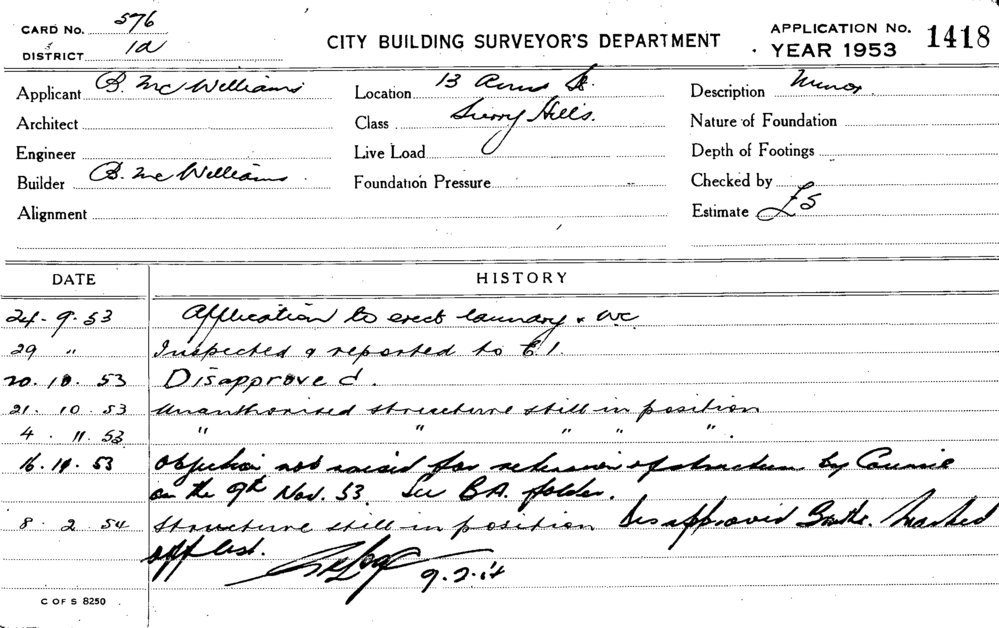 CARD No. 576
DISTRICT 1a
CITY BUILDING SURVEYOR'S DEPARTMENT
APPLICATION No. 1418
YEAR 1953
Applicant B. McWilliams
Location 13 St.
Description Minor
Architect
Class Surry Hills.
Nature of Foundation
Engineer
Live Load
Depth of Footings
Builder B. McWilliams.
Foundation Pressure
Checked by
Alignment
Estimate £5
DATE HISTORY
24-9.53 Application to erect laundry & WC
29 " Inspected & reported to E.I.
20.10.53 Disapproved.
21.10.53 Unauthorised structure still in position
4.11.53 " " " " ".
16.11.53 Objection not raised for retention of structure by Council
on the 9th Nov. 53. See B.A. folder.
8.2.54 Structure still in position Disapproved Marked
off list.
9.2.54
C OF S 8250